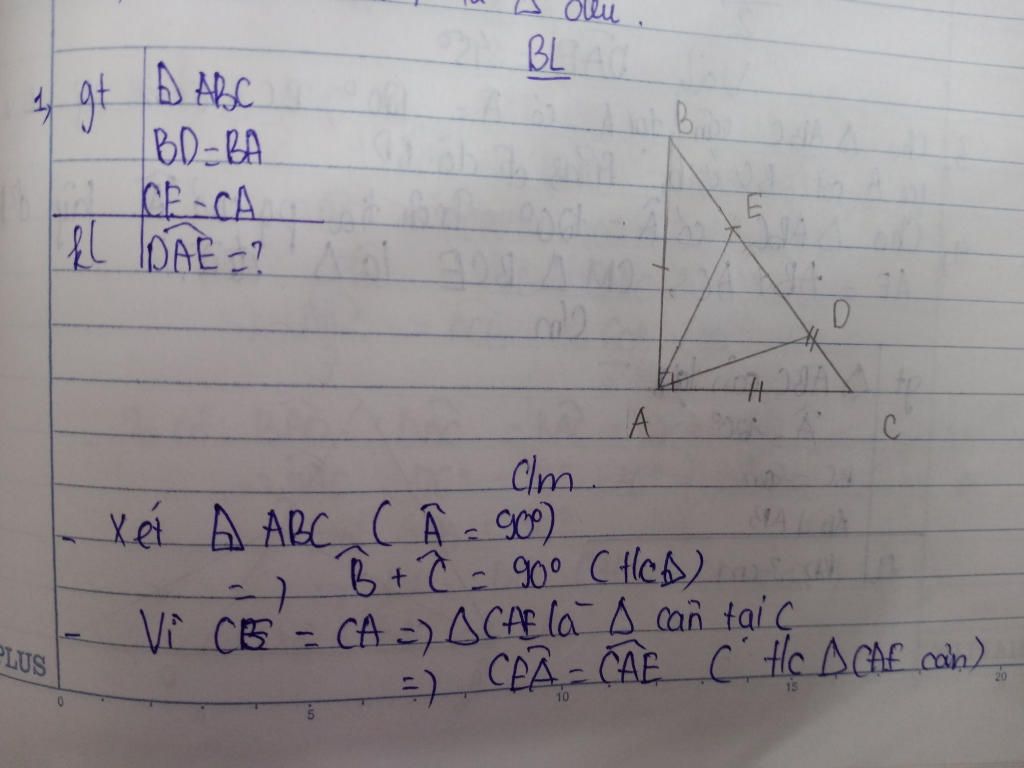 là Δ đều.
BL
1, gt Δ ABC
BD = BA
CE = CA
kl D̂AE = ?
B
E
D
A
C
C/m.
- Xét Δ ABC ( Â = 90°)
=> B̂ + Ĉ = 90° ( t/c Δ)
- Vì CE = CA => Δ CAE là Δ cân tại C
=> CÊA = CÂE ( t/c Δ CAE cân)
PLUS
0 5 10 15 20